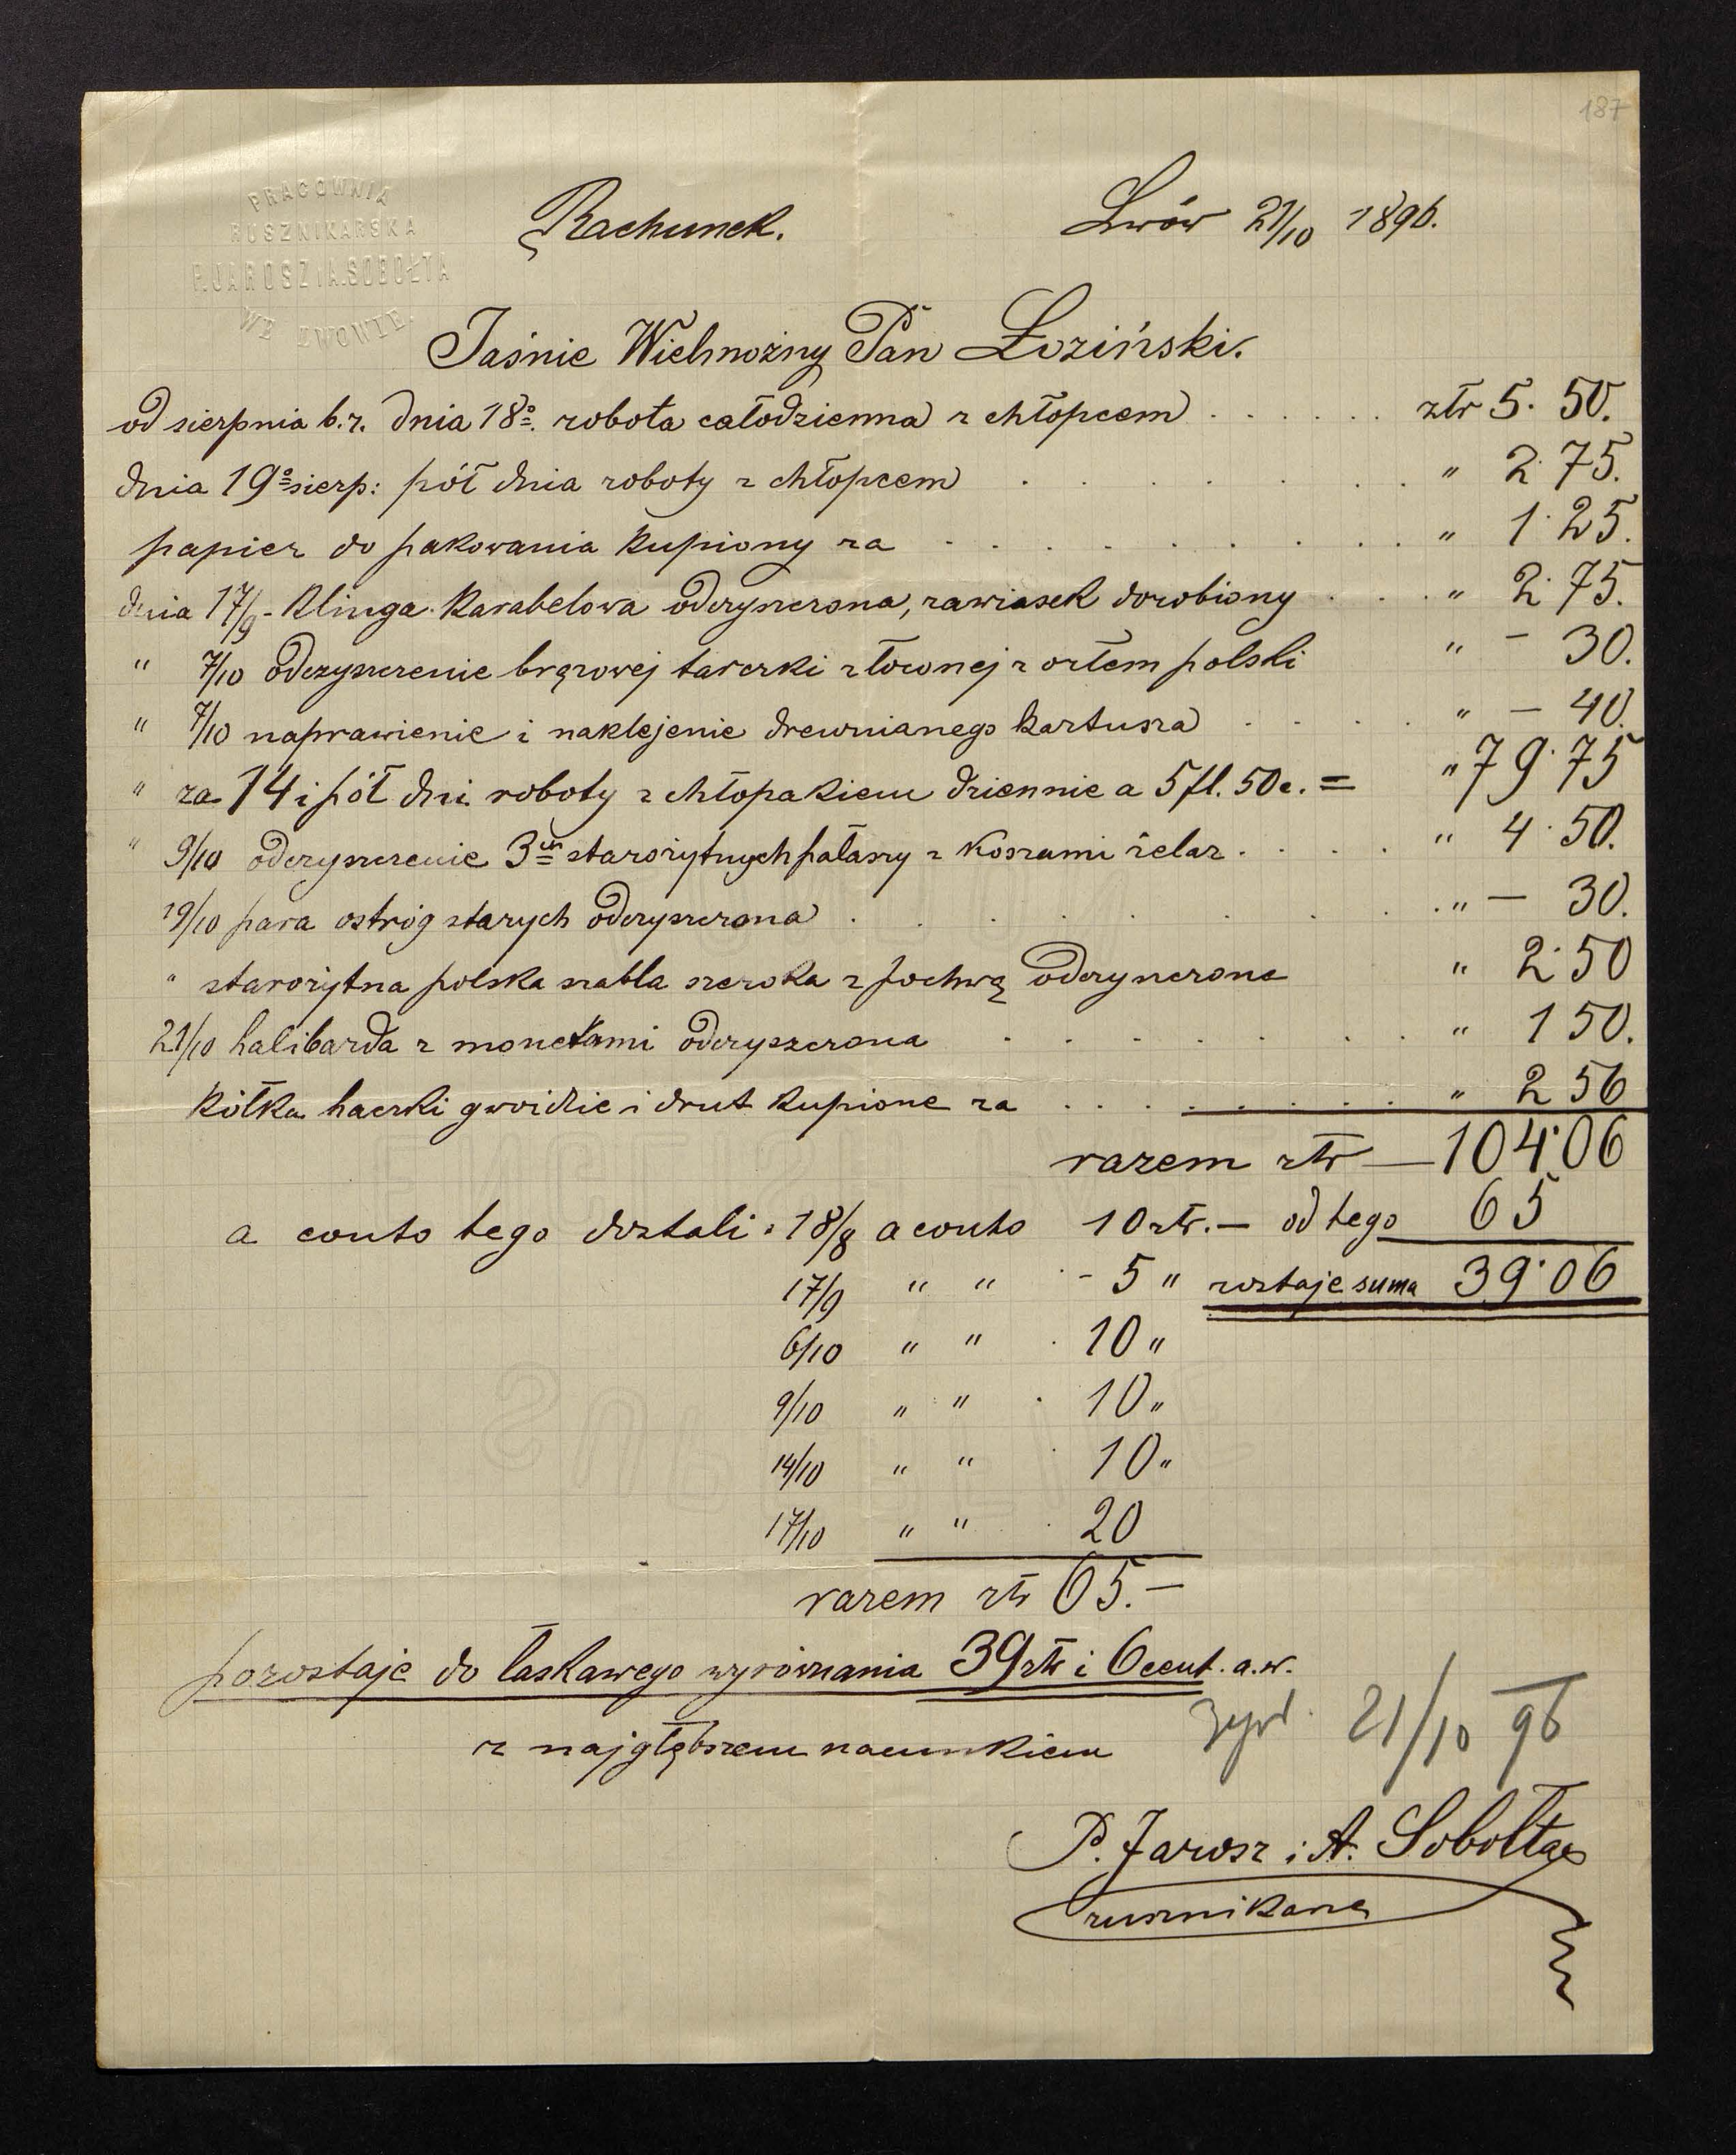 187
PRACOWNIA
RUSZNIKARSKA
P. JAROSZ I A. SOBOŁTA
WE LWOWIE.
Rachunek.
Lwów 21/10 1896.
Jaśnie Wielmożny Pan Łoziński.
od sierpnia b.r. dnia 18º. robota całodzienna z chłopcem . . . . . . złr 5. 50.
dnia 19º sierp: pół dnia roboty z chłopcem . . . . . . . " 2. 75.
papier do pakowania kupiony za . . . . . . . . . " 1. 25.
dnia 17/9 - klinga karabelowa odczyszczona, zawiasek dorobiony . . . " 2. 75.
" 7/10 odczyszczenie brązowej tarczki złoconej z orłem polski " — 30.
" 7/10 naprawienie i naklejenie drewnianego kartusza . . . . " — 40.
" za 14 i pół dni roboty z chłopakiem dziennie a 5 fl. 50 c. = " 79. 75
" 9/10 odczyszczenie 3ch starożytnych pałaszy z koszami żelaz . . . . " 4. 50.
19/10 para ostróg starych odczyszczona . . . . . . . . . " — 30.
" starożytna polska szabla szeroka z pochwą odczyszczone " 2. 50
21/10 halibarda z monetami odczyszczona . . . . . . . " 1 50.
Kółka haczki gwoździe i drut kupione za . . . . . . . . " 2 56
razem złr — 104.06
a conto tego dostali: 18/8 a conto 10 złr. — od tego 65
17/9 " " - 5 " zostaje suma 39.06
6/10 " " . 10 "
9/10 " " . 10 "
14/10 " " . 10 "
17/10 " " . 20
razem złr 65. —
pozostaje do łaskawego wyrównania 39 złr i 6 cent. a.w.
z najgłębszem szacunkiem
21/10 96
P. Jarosz i A. Sobołta
rusznikarze